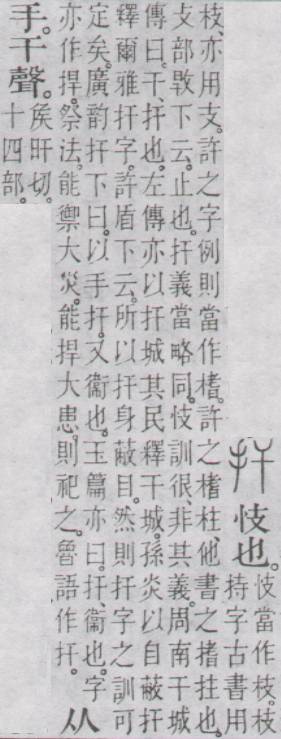 扞 忮也。
忮當作枝。枝
持字古書用
枝、亦用支。許之字例則當作榰。許之榰柱、他書之搘拄也。
攴部㪋下云。止也。扞義當略同。忮訓很、非其義。周南干城
傳曰。干、扞也。左傳亦以扞城其民釋干城。孫炎以自蔽扞
釋爾雅扞字。許盾下云。所以扞身蔽目。然則扞字之訓可
定矣。廣韵扞下曰。以手扞。又衞也。玉篇亦曰。扞、衞也。字
亦作捍。祭法。能禦大災。能捍大患。則祀之。魯語作扞。
从
手。干聲。
矦旰切。
十四部。